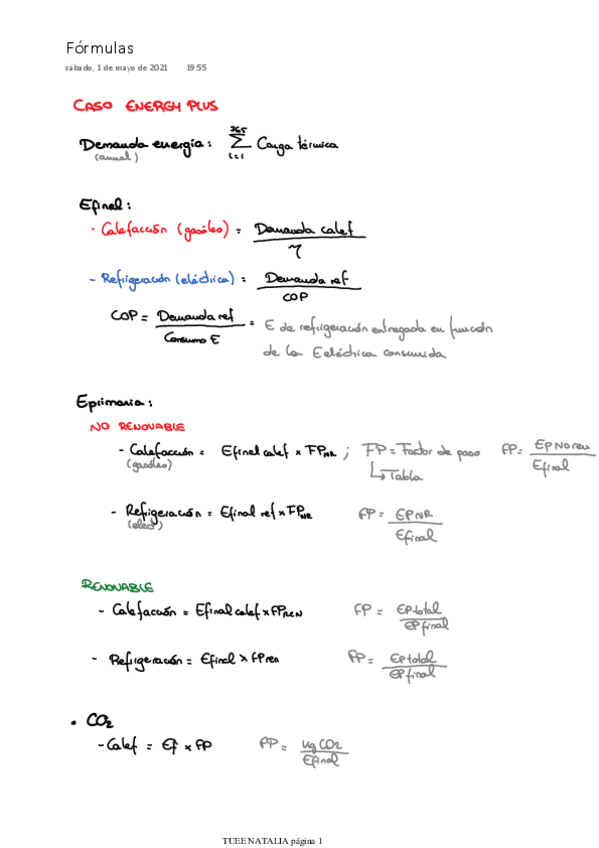 Fórmulas
sábado, 1 de mayo de 2021 19:55
CASO ENERGY PLUS
Demanda energía: 365 Σ i=1 Carga térmica
(anual)
Efinal:
· Calefacción (gasóleo) = Demanda calef / η
- Refrigeración (eléctrica) = Demanda ref / COP
COP = Demanda ref / Consumo E = E de refrigeración entregada en función
de la E eléctrica consumida
Eprimaria:
NO RENOVABLE
- Calefacción = Efinal calef x FPNR ; FP = Factor de paso FP = EP No ren / Efinal
(gasóleo) ↳ Tabla
- Refrigeración = Efinal ref x FPNR FP = EPNR / Efinal
(elect)
RENOVABLE
- Calefacción = Efinal calef x FPREN FP = EPtotal / EPfinal
- Refrigeración = Efinal x FPren FP = EPtotal / EPfinal
• CO2
- Calef = Ef x FP FP = kg CO2 / Efinal
TUEE NATALIA página 1